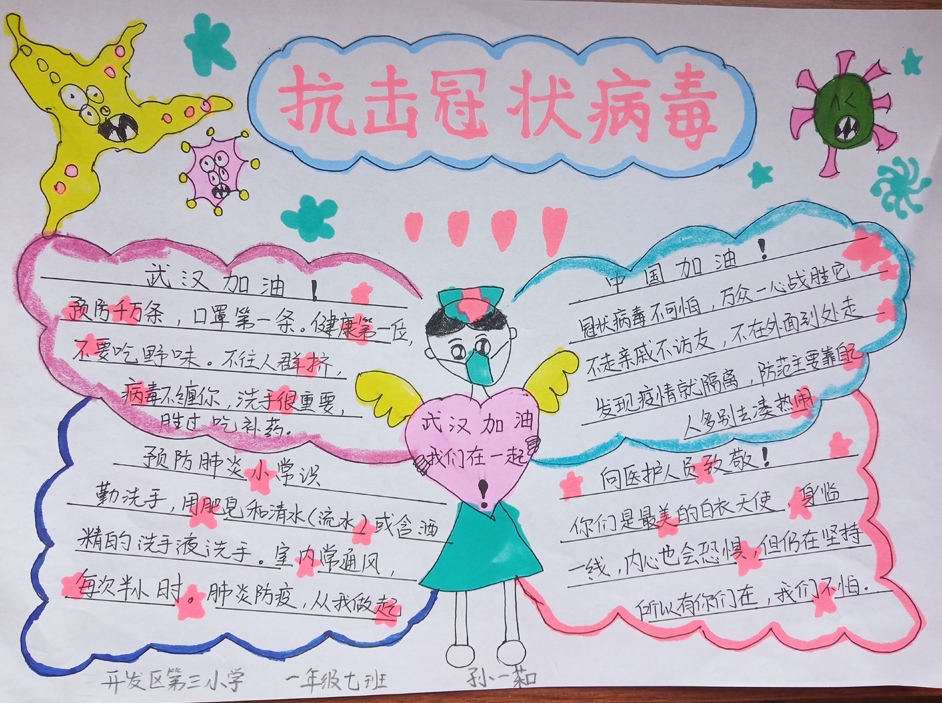 抗击冠状病毒
武汉加油！
预防千万条，口罩第一条。健康第一位，
不要吃野味。不往人群挤，
病毒不缠你，洗手很重要，
胜过吃补药。
中国加油！
冠状病毒不可怕，万众一心战胜它
不走亲戚不访友，不在外面到处走
发现疫情就隔离，防范主要靠自己
人多别去凑热闹
武汉加油
我们在一起
！
预防肺炎小常识
勤洗手，用肥皂和清水（流水）或含酒
精的洗手液洗手。室内常通风，
每次半小时。肺炎防疫，从我做起
向医护人员致敬！
你们是最美的白衣天使，身临
一线，内心也会恐惧，但仍在坚持
所以有你们在，我们不怕.
开发区第三小学 一年级七班 孙一茹